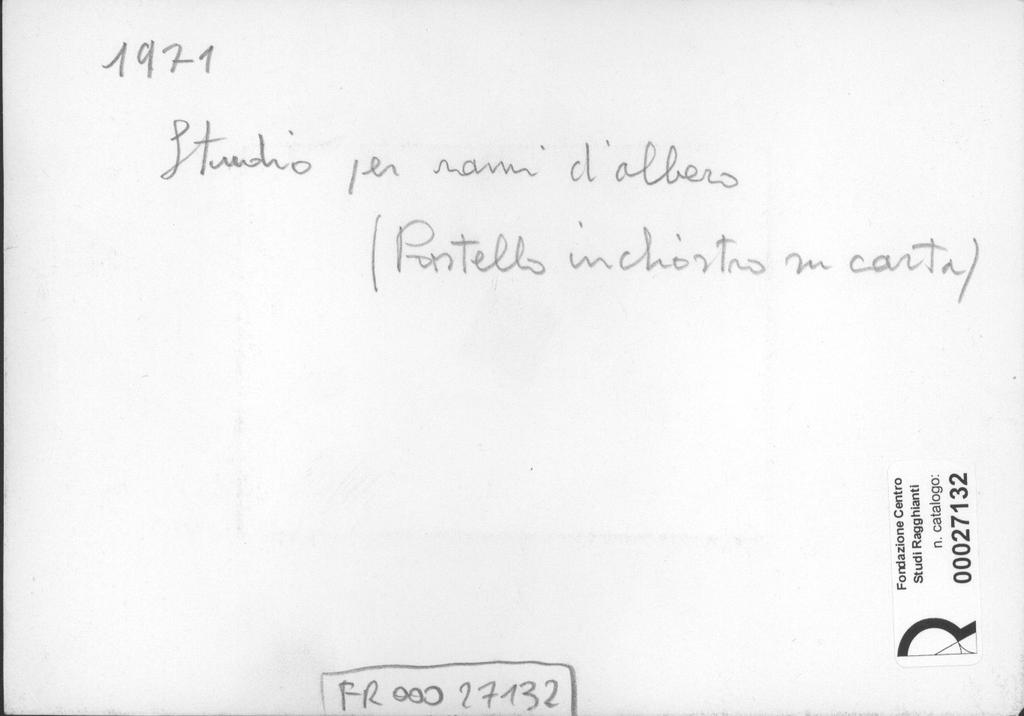 1971
Studio per rami d'albero
(Pastello inchiostro su carta)
Fondazione Centro
Studi Ragghianti
n. catalogo:
00027132
FR 000 27132